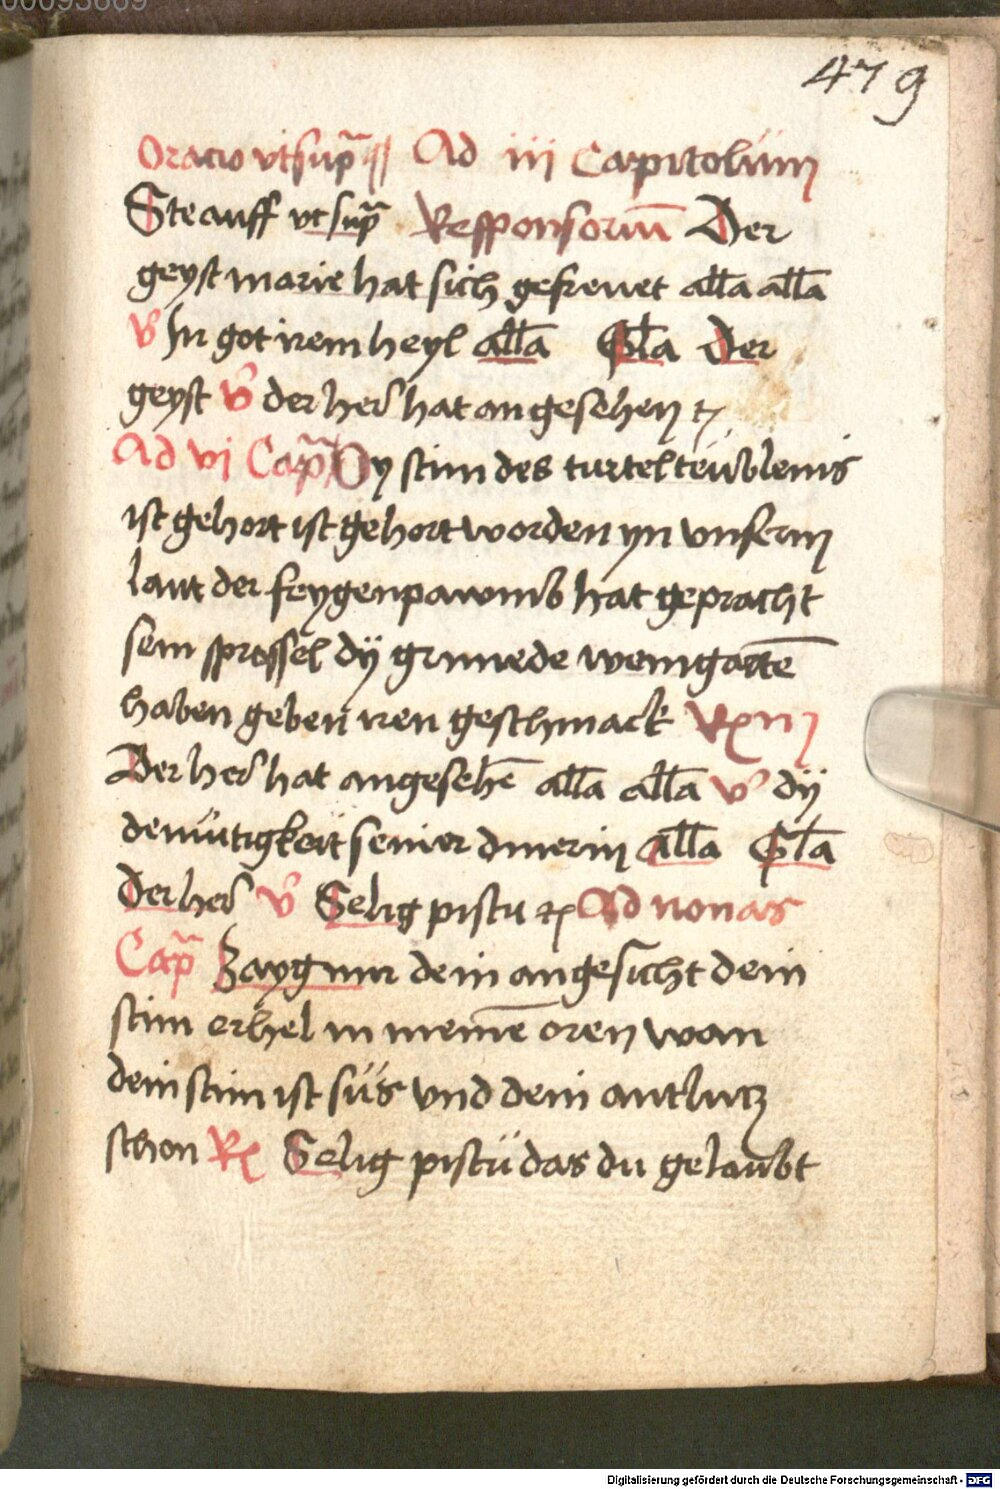 00093669
479
Oracio vt sup̄ Ad iii Capitolum
Ste auff vt sup̄ Responsoriū Der
geyst marie hat sich gefrewet all̄a all̄a
V̓ In got irem heyl all̄a Gl̄a Der
geyst V̓ der her̓ hat angesehen ⁊c
Ad vi Cap̄ Dy stim des turtelteüblenis
ist gehort ist gehort worden yn vnserm
lant der feygenpawmb hat gepracht
sein sprossel dÿ grunede weingartē
haben geben iren geschmack Rm̄
Der her̓ hat angesehē all̄a all̄a V̓ dÿ
demütigkeit seiner dinerin all̄a Gl̄a
Der her̓ V̓ Selig pistu ⁊c Ad nonas
Cap̄ Zayg mir dein angesicht dein
stim erhel in meinē oren wan
dein stim ist süs vnd dein antlucz
schon R Selig pistü das du gelaubt
Digitalisierung gefördert durch die Deutsche Forschungsgemeinschaft - DFG